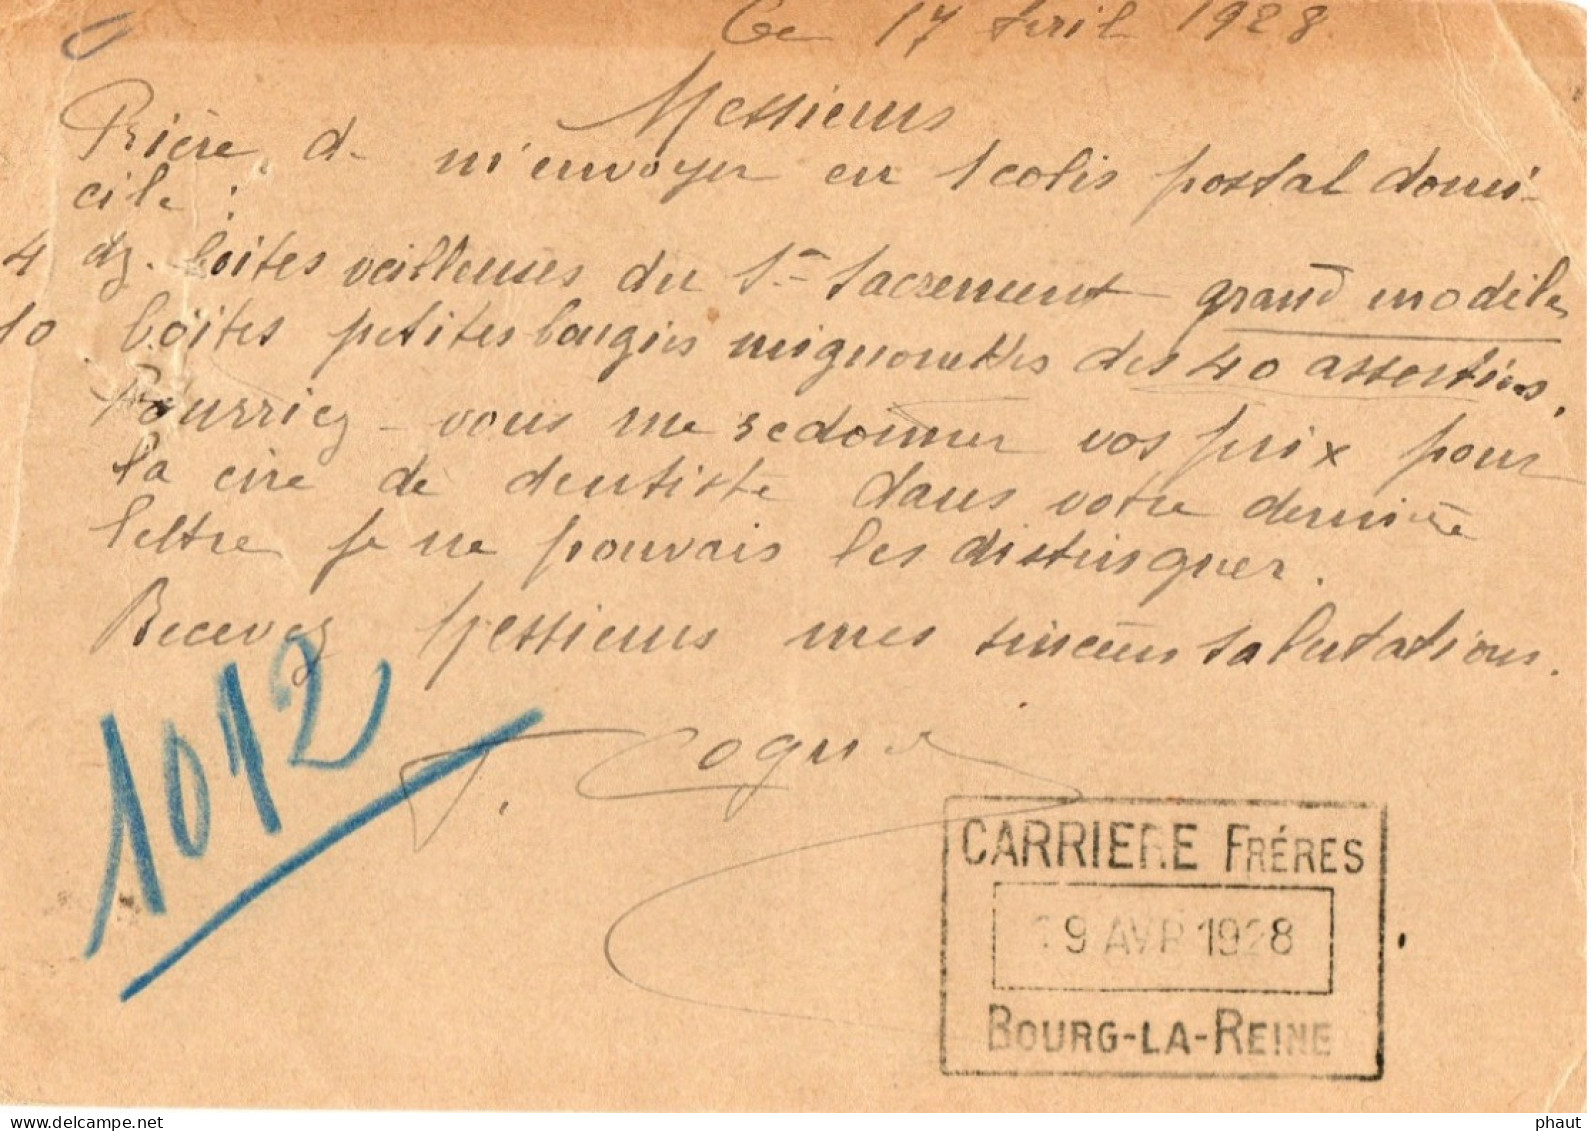 Ce 17 Avril 1928
Messieurs
Prière de m'envoyer en 1 colis postal domi-
cile :
4 dz. boites veilleuses du St Sacrement grand modèle
10 boites petites bougies mignonettes des 40 assorties.
Pourriez-vous me redonner vos prix pour
la cire de dentiste dans votre dernière
lettre je ne pouvais les distinguer.
Recevez Messieurs mes sincères salutations.
1012
CARRIERE FRÉRES
19 AVR 1928
BOURG-LA-REINE
www.delcampe.net
phaut